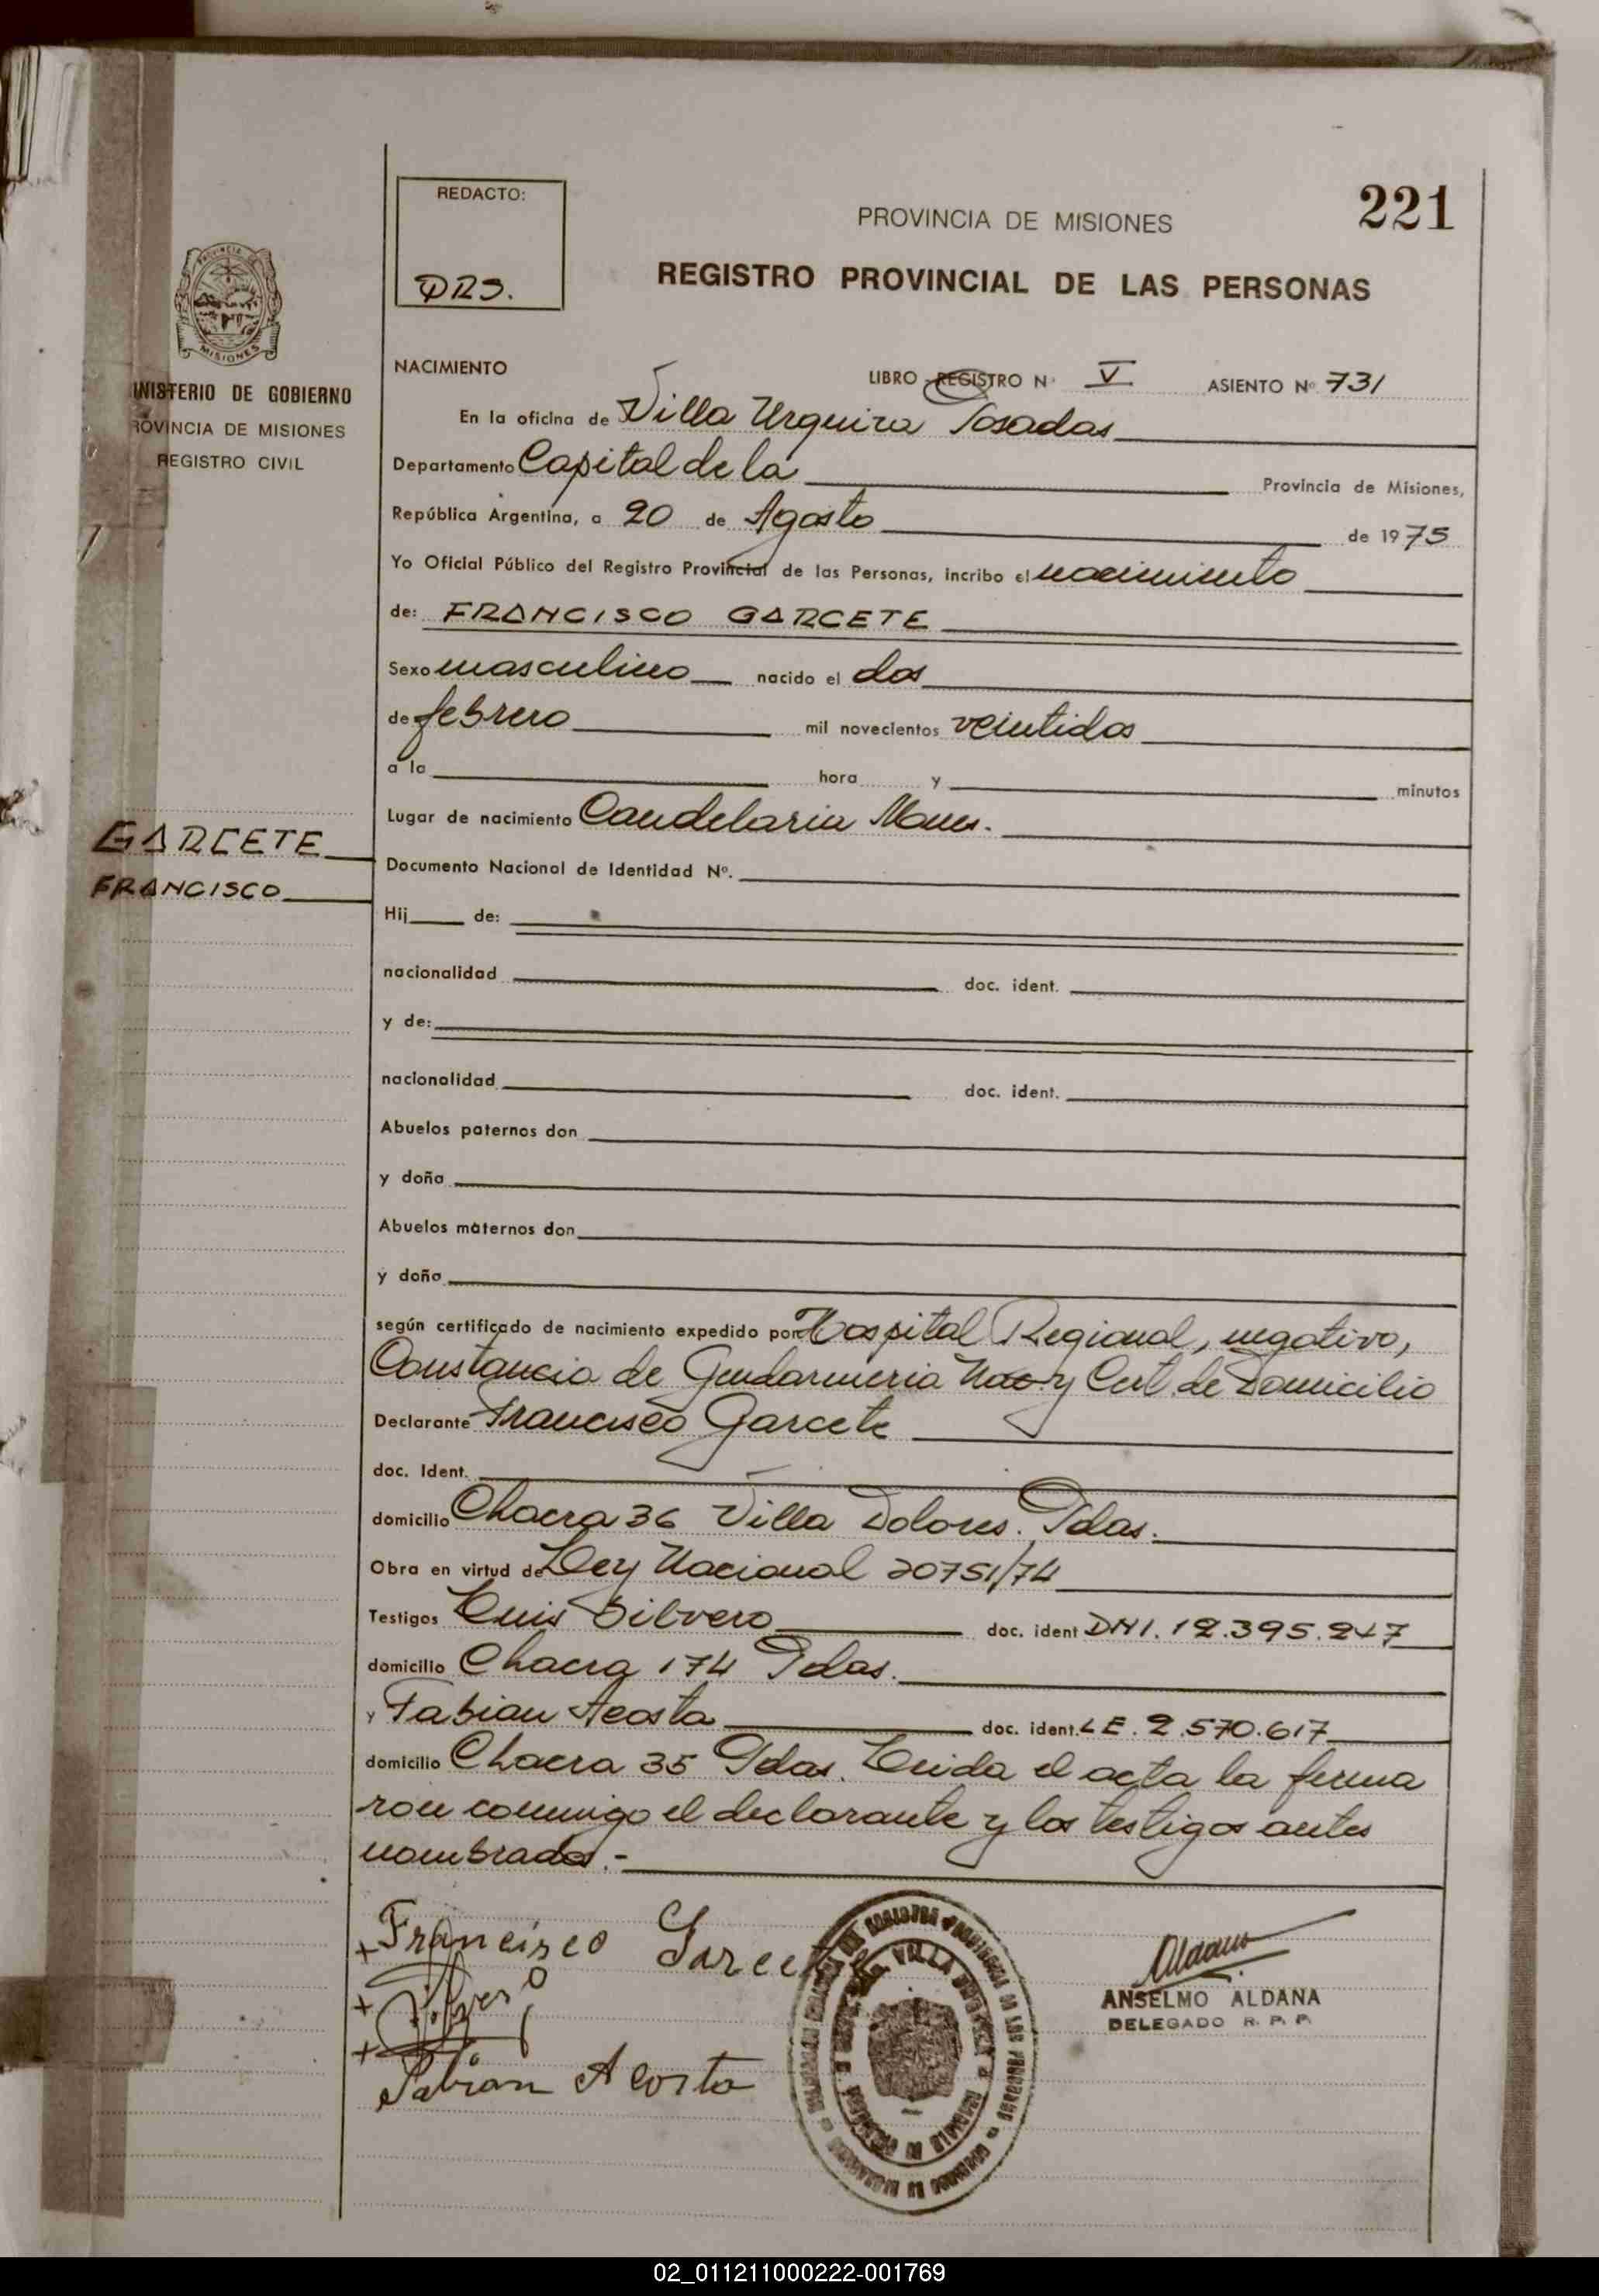 221
REDACTO:
DRS.
PROVINCIA DE MISIONES
REGISTRO PROVINCIAL DE LAS PERSONAS
MISIONES
INISTERIO DE GOBIERNO
ROVINCIA DE MISIONES
REGISTRO CIVIL
GARCETE
FRANCISCO
NACIMIENTO LIBRO REGISTRO Nº V ASIENTO Nº 731
En la oficina de Villa Urquiza Posadas
Departamento Capital de la Provincia de Misiones,
República Argentina, a 20 de Agosto de 1975
Yo Oficial Público del Registro Provincial de las Personas, incribo el nacimiento
de: FRANCISCO GARCETE
Sexo masculino nacido el dos
de febrero mil novecientos veintidos
a la hora y minutos
Lugar de nacimiento Candelaria Mnes.
Documento Nacional de Identidad Nº.
Hij de:
nacionalidad doc. ident.
y de:
nacionalidad doc. ident.
Abuelos paternos don
y doña
Abuelos maternos don
y doña
según certificado de nacimiento expedido por Hospital Regional, negativo,
Constancia de Gendarmeria Nac. y Cert. de Domicilio
Declarante Francisco Garcete
doc. Ident.
domicilio Chacra 36 Villa Dolores. Pdas.
Obra en virtud de Ley Nacional 20751/74
Testigos Luis Silvero doc. ident DNI. 12.395.247
domicilio Chacra 174 Pdas.
y Fabian Acosta doc. ident. LE. 2.570.617
domicilio Chacra 35 Pdas. Leida el acta la firma
ron conmigo el declarante y los testigos antes
nombrados.-
+ Francisco Garcete
+ Silvero
+ Fabian Acosta
ANSELMO ALDANA
DELEGADO R. P. P.
02_011211000222-001769